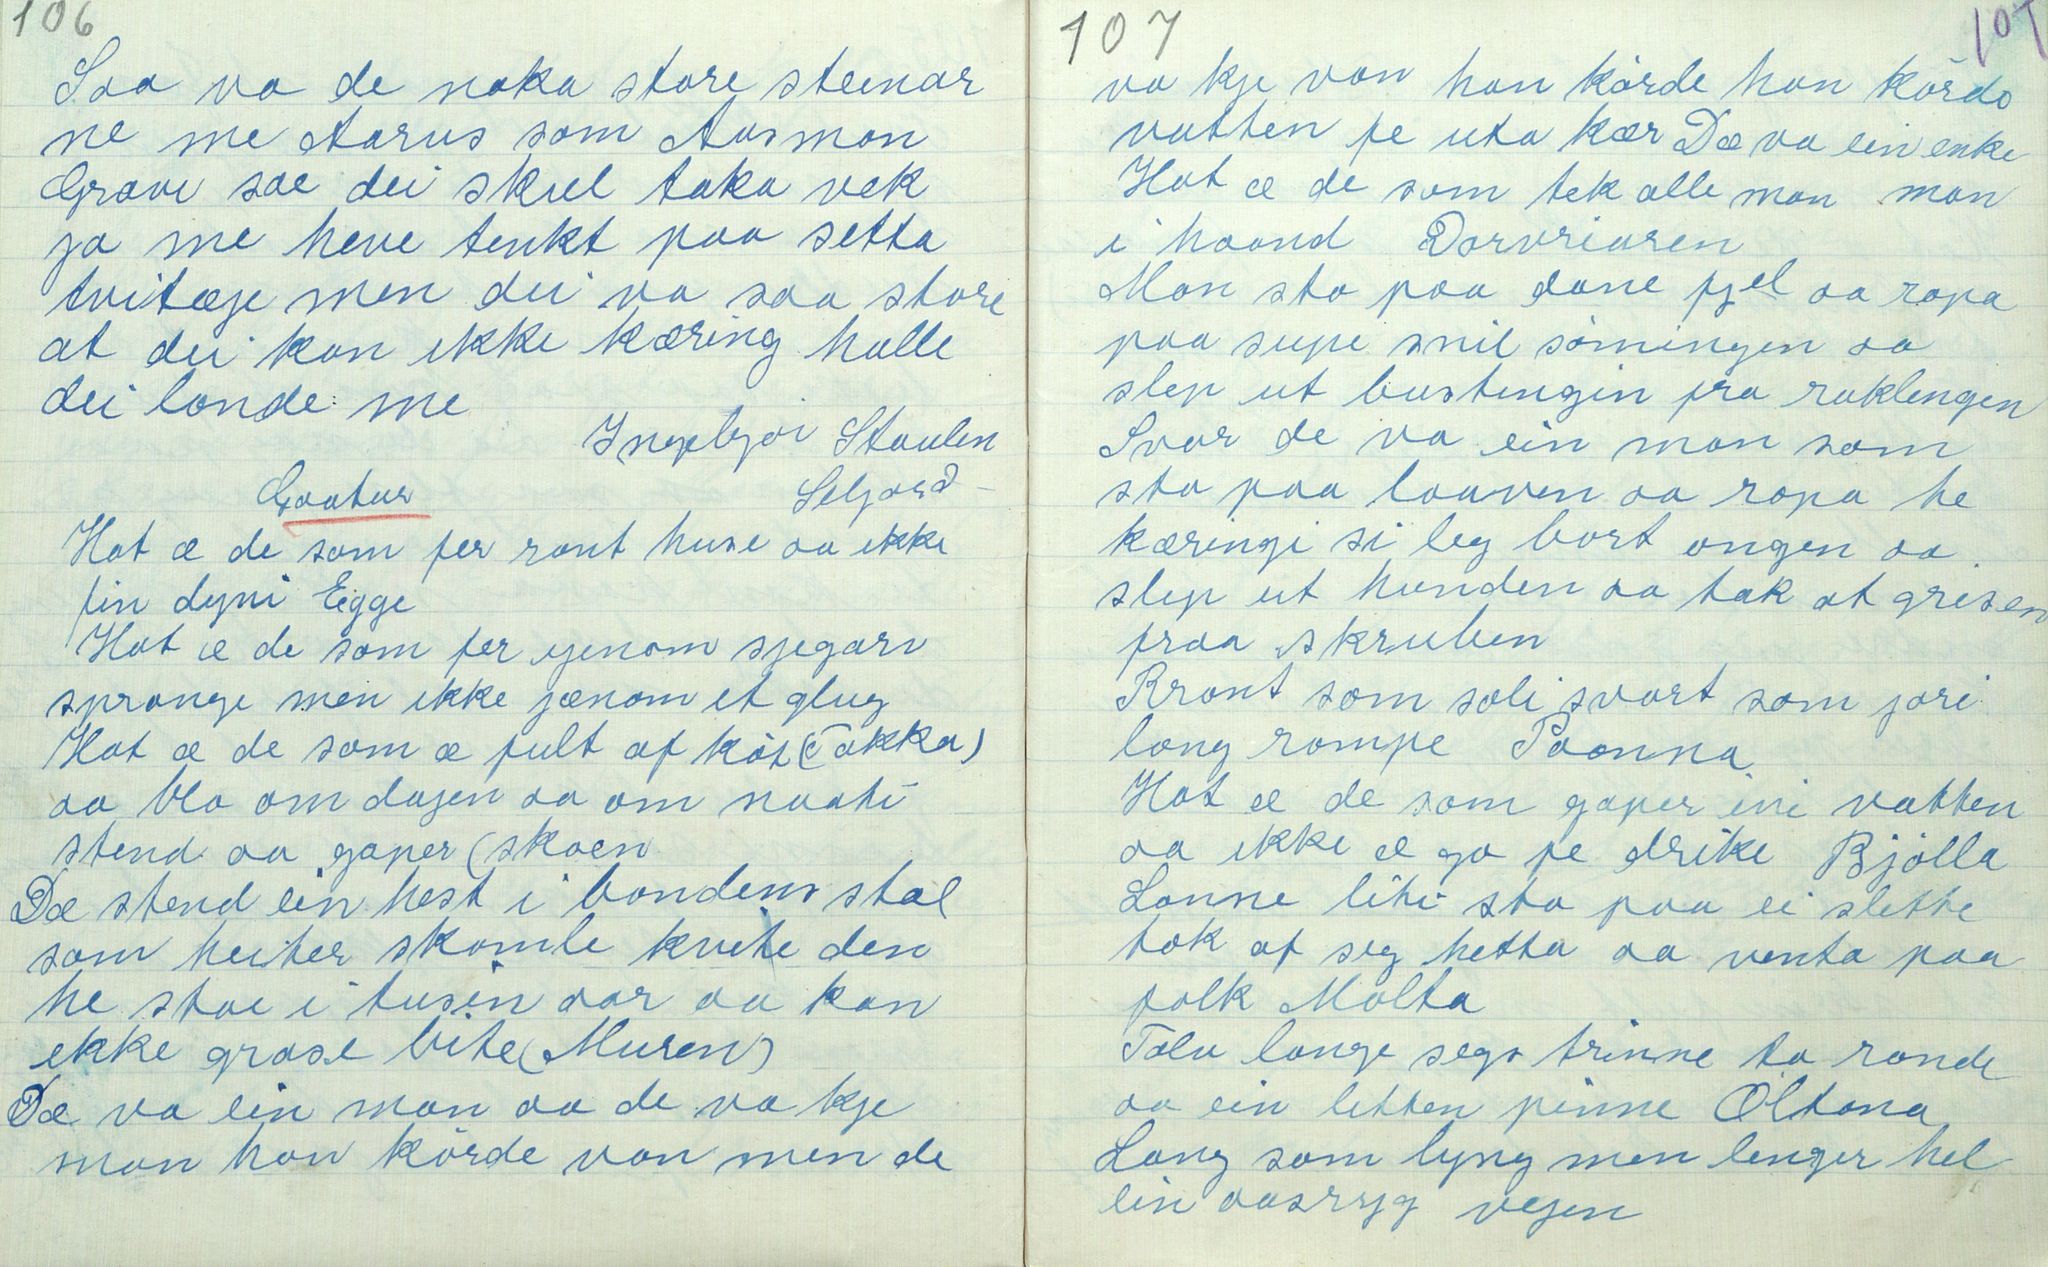 106
Saa va de noka store steinar
ne me Aarus som Aasmon
Grave sae dei skul taka vek
ja me heve tenkt paa setta
tvitæje men dei va saa store
at dei kan ikke kæring halle
dei londe me
Ingebjør Staulen
Seljord
Gaatur
Hot æ de som fer ront huse aa ikke
fin dyni Egge
Hot æ de som fer gjenom sjegarv
spronge men ikke jænom et glug
Hot æ de som æ fult af kjöt (Takka)
aa blo om dagen aa om naati
stend aa gaper (skoen
Dæ stend ein hest i bondens stal
som heiter skomle kvite den
he stae i tusin aar aa kan
ekke grase bite (Muren)
Dæ va ein man aa de va kje
man han körde van men de
107
107
va kje van han körde han körde
vatten fe uta kær Dæ va ein enke
Hot æ de som tek alle man man
i haand Dorvriaren
Man sto paa dane fjel aa ropa
paa supe snil sömingen aa
slep ut bustengin fra raklengen
Svar de va ein man som
sto paa laaven aa ropa he
kæringi si leg bort ongen aa
slep ut hunden aa tak at grisen
fraa skruben
Rront som soli svart som jori
long rompe Paanna
Hot æ de som gaper ini vatten
aa ikke æ go fe drike Bjölla
Lonne liti sto paa ei slette
tok af seg hetta aa venta paa
folk Molta
Tolv longe segs trinne to ronde
aa ein letten pinne Öltona
Long som lyng men lenger hel
ein aasryg vejen